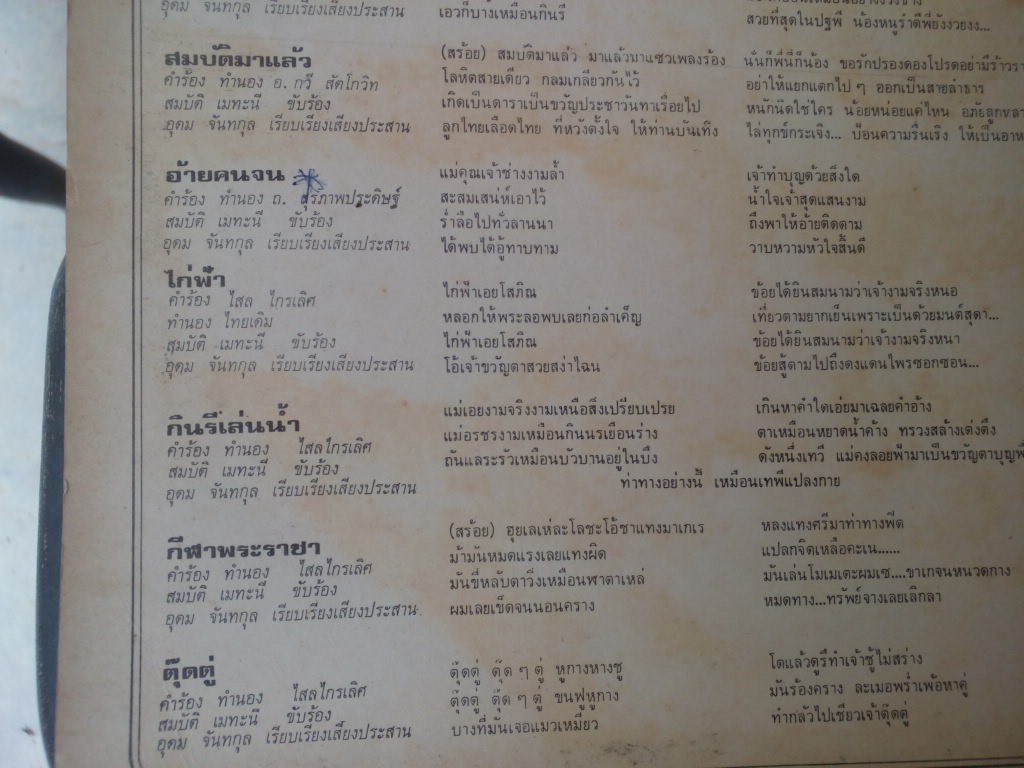 อุดม จันทกุล เรียบเรียงเสียงประสาน
เอวก็บางเหมือนกินรี
สวยที่สุดในปฐพี น้องหนูรำดีพี่ยังงวยงง...
สมบัติมาแล้ว
คำร้อง ทำนอง อ. กวี สัตโกวิท
สมบัติ เมทะนี ขับร้อง
อุดม จันทกุล เรียบเรียงเสียงประสาน
(สร้อย) สมบัติมาแล้ว มาแล้วมาแซวเพลงร้อง
โลหิตสายเดียว กลมเกลียวกันไว้
เกิดเป็นดาราเป็นขวัญประชาวันทาเรื่อยไป
ลูกไทยเลือดไทย ที่หวังตั้งใจ ให้ท่านบันเทิง
นั่นก็พี่นี่ก็น้อง ขอรักปรองดองโปรดอย่ามีร้าวรา
อย่าให้แยกแตกไป ๆ ออกเป็นสายลำธาร
หนักนิดใช่ใคร น้อยหน่อยแค่ไหน อภัยลูกหลา
ไล่ทุกข์กระเจิง... ป้อนความรื่นเริง ให้เป็นอาห
อ้ายคนจน
คำร้อง ทำนอง ถ. สุรภาพประดิษฐ์
สมบัติ เมทะนี ขับร้อง
อุดม จันทกุล เรียบเรียงเสียงประสาน
แม่คุณเจ้าช่างงามล้ำ
สะสมเสน่ห์เอาไว้
ร่ำลือไปทั่วลานนา
ได้พบได้อู้ทาบทาม
เจ้าทำบุญด้วยสิ่งใด
น้ำใจเจ้าสุดแสนงาม
ถึงพาให้อ้ายติดตาม
วาบหวามหัวใจสิ้นดี
ไก่ฟ้า
คำร้อง ไสล ไกรเลิศ
ทำนอง ไทยเดิม
สมบัติ เมทะนี ขับร้อง
อุดม จันทกุล เรียบเรียงเสียงประสาน
ไก่ฟ้าเอยโสภิณ
หลอกให้พระลอพบเลยก่อลำเค็ญ
ไก่ฟ้าเอยโสภิณ
โอ้เจ้าขวัญตาสวยสง่าไฉน
ข้อยได้ยินสมนามว่าเจ้างามจริงหนอ
เที่ยวตามยากเย็นเพราะเป็นด้วยมนต์สุดา...
ข้อยได้ยินสมนามว่าเจ้างามจริงหนา
ข้อยสู้ตามไปถึงดงแดนไพรซอกซอน...
กินรีเล่นน้ำ
คำร้อง ทำนอง ไสลไกรเลิศ
สมบัติ เมทะนี ขับร้อง
อุดม จันทกุล เรียบเรียงเสียงประสาน
แม่เอยงามจริงงามเหนือสิ่งเปรียบเปรย
แม่อรชรงามเหมือนกินนรเยือนร่าง
ถันแลระรัวเหมือนบัวบานอยู่ในบึง
ท่าทางอย่างนี้ เหมือนเทพีแปลงกาย
เกินหาคำใดเอ่ยมาเฉลยคำอ้าง
ตาเหมือนหยาดน้ำค้าง ทรวงสล้างเต่งตึง
ดังหนึ่งเทวี แม่คงลอยฟ้ามาเป็นขวัญตาบุญพี
กีฬาพระราชา
คำร้อง ทำนอง ไสลไกรเลิศ
สมบัติ เมทะนี ขับร้อง
อุดม จันทกุล เรียบเรียงเสียงประสาน
(สร้อย) ฮุยเลเห่ละโลชะโอ้ชาแทงมาเกเร
ม้ามันหมดแรงเลยแทงผิด
มันขี่หลับตาวิ่งเหมือนฟาตาเหล่
ผมเลยเข็ดจนนอนคราง
หลงแทงศรีมาท่าทางฟิต
แปลกจิตเหลือคะเน......
มันเล่นโมเมเตะผมเซ....ขาเกจนหนวดกาง
หมดทาง...ทรัพย์จางเลยเลิกลา
ตุ๊ดตู่
คำร้อง ทำนอง ไสลไกรเลิศ
สมบัติ เมทะนี ขับร้อง
อุดม จันทกุล เรียบเรียงเสียงประสาน
ตุ๊ดตู่ ตุ๊ด ๆ ตู่ หูกางหางชู
ตุ๊ดตู่ ตุ๊ด ๆ ตู่ ขนฟูหูกาง
บางทีมันเจอแมวเหมียว
โดแล้วดูรึทำเจ้าชู้ไม่สร่าง
มันร้องคราง ละเมอพร่ำเพ้อหาคู่
ทำกลัวไปเชียวเจ้าตุ๊ดตู่